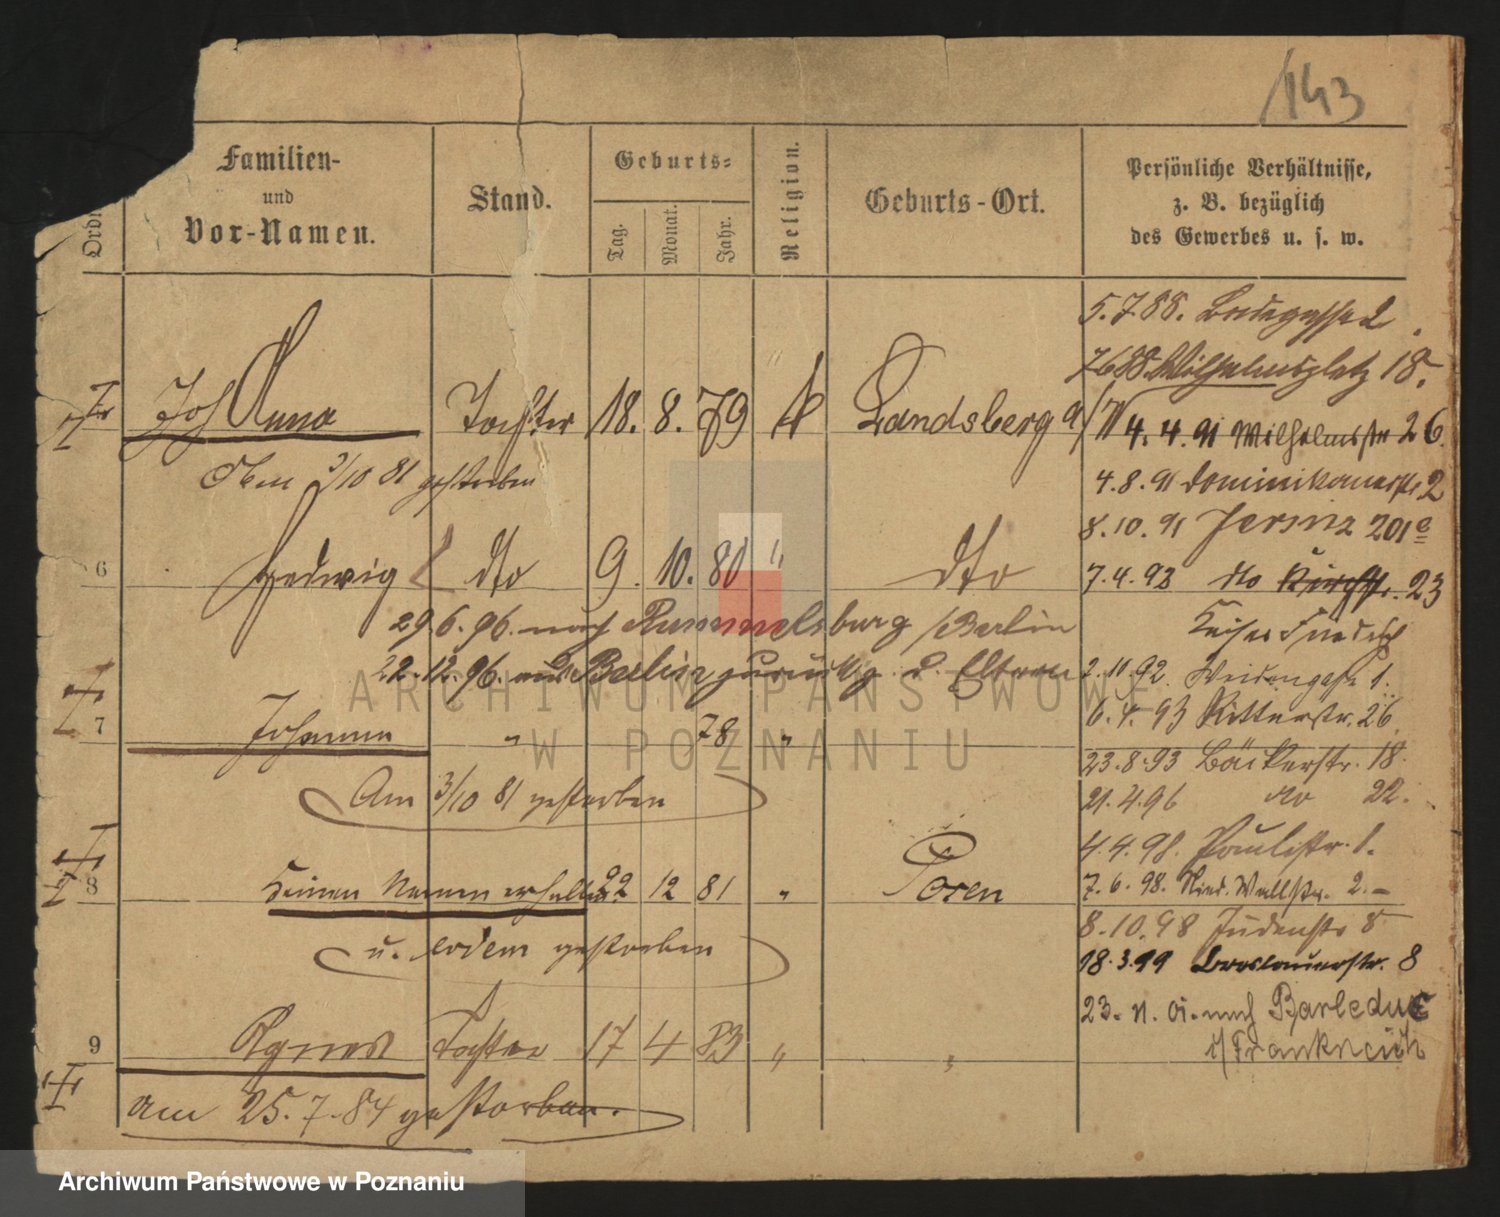 143
Familien-
und
Vor-Namen.
Stand.
Geburts-
Tag.
Monat.
Jahr.
Religion.
Geburts-Ort.
Persönliche Verhältnisse,
z. B. bezüglich
des Gewerbes u. s. w.
5.7.88. 2
Wilhelmsplatz 18.
Joh Anna Tochter 18. 8. 79 Landsberg a/W
4.4.91 Wilhelmstr 26.
3/10 81 gestorben
4.8.91 Dominikanerstr 2
8.10.91 Jersitz 201
6 Hedwig dto 9. 10. 80 " dto
7.4.92 dto 23
29.6.96. nach Rummelsburg /Berlin
Kaiser Friedrich
22.12.96. aus Berlin zurück z. d. Eltern
2.11.92. Weidengasse 1.
6.4.93 Ritterstr. 26.
7 Johann " 78 "
23.8.93 Bäckerstr. 18.
Am 3/10 81 gestorben
21.4.96 do 22.
4.4.98. Paulistr. 1.
8 Keinen Namen erhalten 22 12 81 " Posen
7.6.98. Nied. Wallstr. 2. -
8.10.98 Judenstr 8
u. eodem gestorben
18.3.99 Breslauerstr. 8
23. 11. 01. nach Barleduc
i/Frankreich
9 Agnes Tochter 17 4 83 " "
am 25.7.84 gestorben.
ARCHIWUM PAŃSTWOWE
W POZNANIU
Archiwum Państwowe w Poznaniu